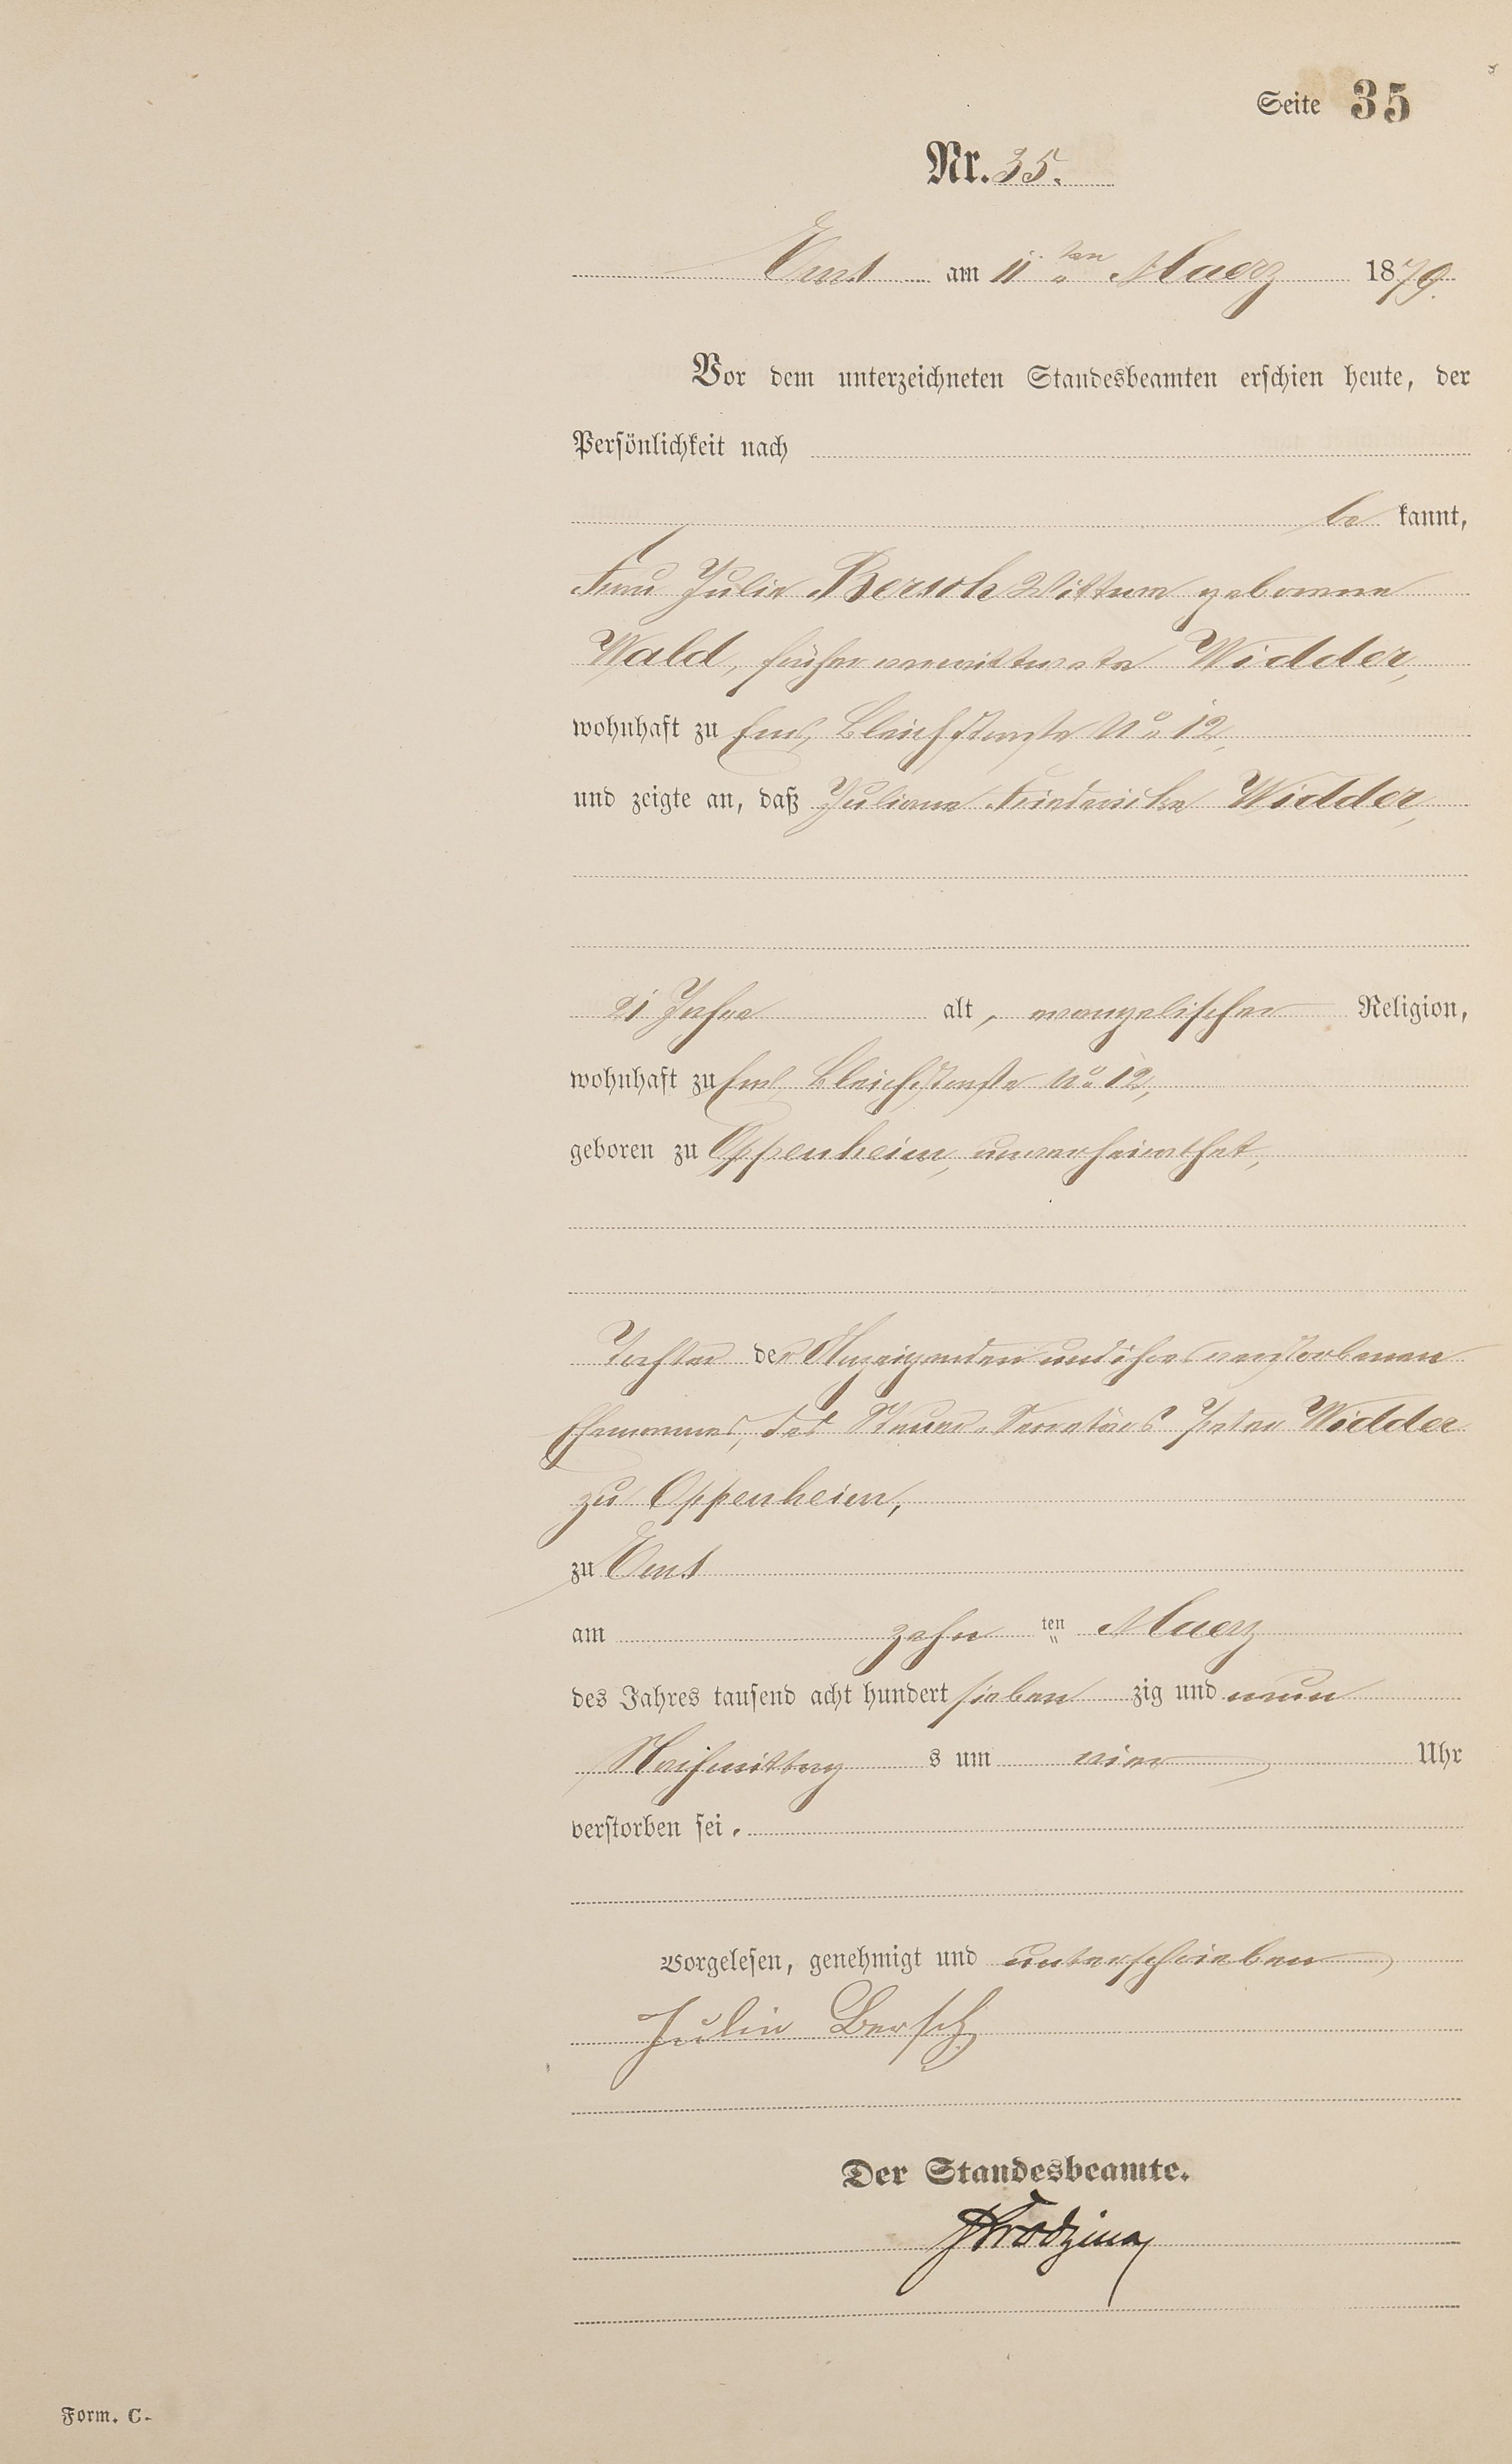 Seite 35
Nr. 35.
Ems am 11ten Maerz 1879.
Vor dem unterzeichneten Standesbeamten erschien heute, der
Persönlichkeit nach
be kannt,
Frau Julie Bersch Wittwe geborene
Wald, früher verwittwete Widder,
wohnhaft zu Ems, Bleichstraße No 12,
und zeigte an, daß Juliane Friedericke Widder,
21 Jahre alt, evangelischer Religion,
wohnhaft zu Ems Bleichstraße No 12,
geboren zu Oppenheim, unverheirathet,
Tochter der Anzeigenden und ihres verstorbenen
Ehemannes, des Steuer-Secretärs Peter Widder
zu Oppenheim,
zu Ems
am zehn ten Maerz
des Jahres tausend acht hundert sieben zig und neun
Nachmittag s um vier Uhr
verstorben sei.
Vorgelesen, genehmigt und unterschrieben
Julie Bersch
Der Standesbeamte.
Form. C.